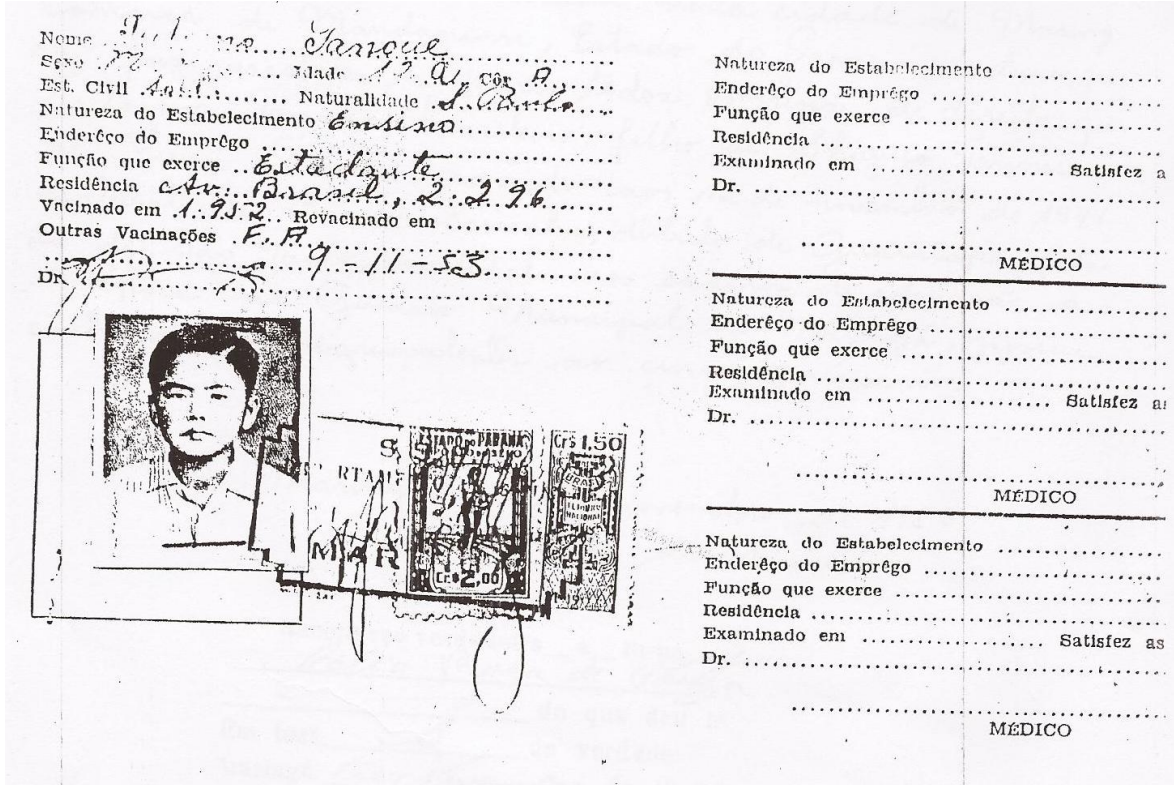 Nome ........ Tanque
Sexo M........ Idade 12 a. Côr A.
Est. Civil Solt......... Naturalidade S. Paulo
Natureza do Estabelecimento Ensino............
Enderêço do Emprêgo ........................
Função que exerce ..Estudante............
Residência Av. Brasil, 2.296...........
Vacinado em 1.952.. Revacinado em ................
Outras Vacinações .F. A........................
9-11-53
Dr. ........................
ESTADO DO PARANÁ
Cr$ 1,50
RTAM
BRASIL
NACIONAL
MAR
Cr.$2,00
Natureza do Estabelecimento ....................
Enderêço do Emprêgo ........................
Função que exerce ........................
Residência ........................
Examinado em .................... Satisfez a
Dr. ........................
MÉDICO
Natureza do Estabelecimento ....................
Enderêço do Emprêgo ........................
Função que exerce ........................
Residência ........................
Examinado em .................... Satisfez as
Dr. ........................
MÉDICO
Natureza do Estabelecimento ....................
Enderêço do Emprêgo ........................
Função que exerce ........................
Residência ........................
Examinado em .................... Satisfez as
Dr. ........................
MÉDICO